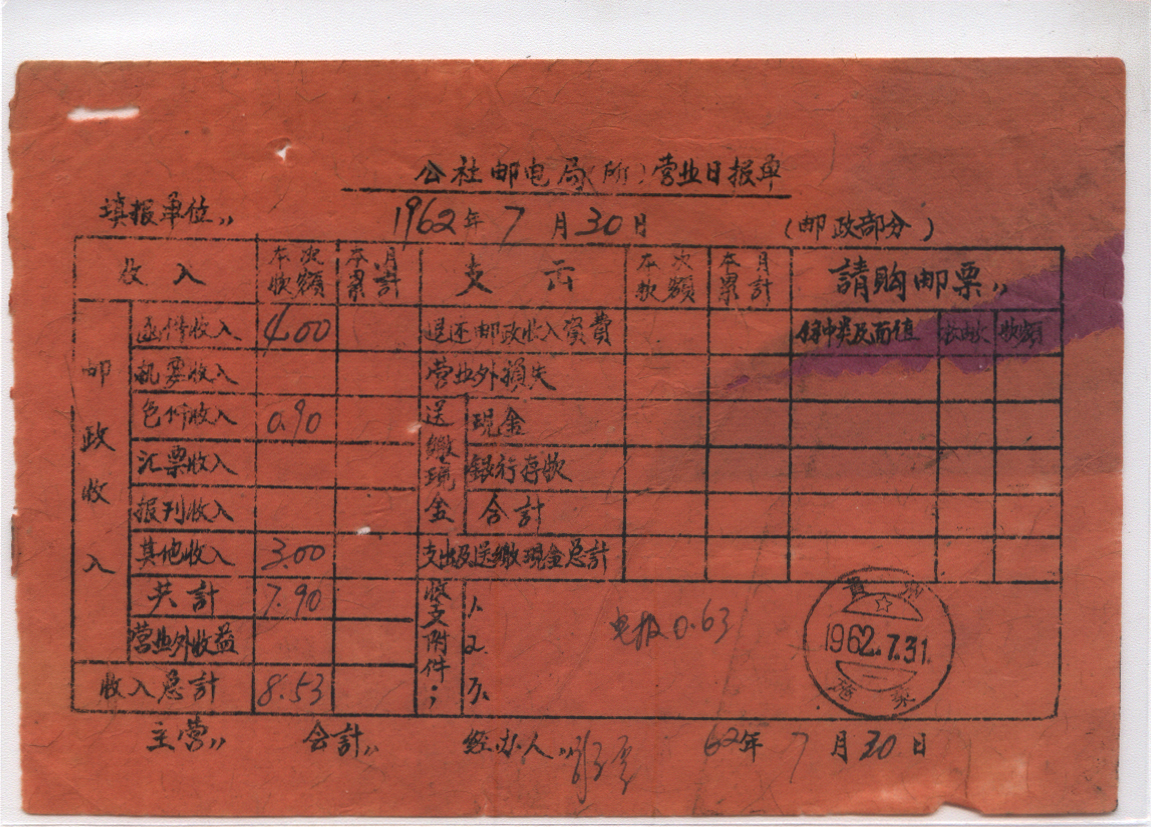 公社邮电局(所)营业日报单
填报单位,, 1962年 7 月 30 日 (邮政部分)
收 入 本次收额 本月累計 支 出 本次款額 本月累計 請购邮票,,
邮政收入 函件收入 4.00 退还邮政收入资費 收額
机要收入 营业外損失
包件收入 0.90 送缴现金 现金
汇票收入 銀行存款
报刊收入 合計
其他收入 3.00 支出及送缴现金总計
共計 7.90 收支附件; 1.
电报0.63
营业外收益 2.
收入总計 8.53 3.
1962.7.31.
主营,, 会計,, 经办人,, 62年 7 月 30 日